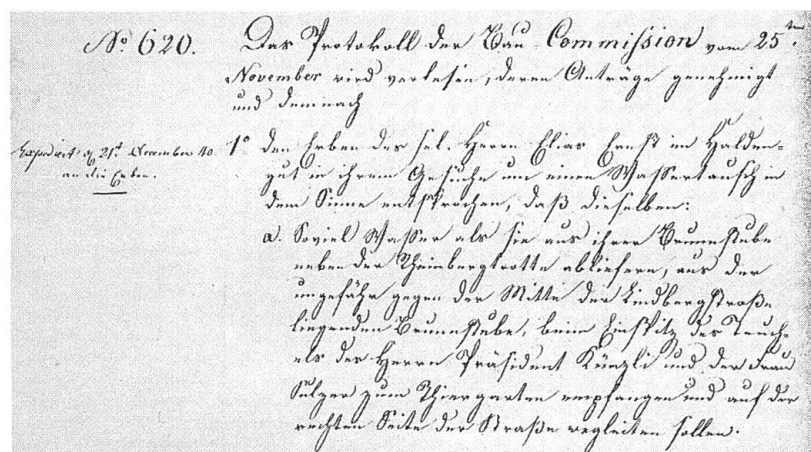 No 620.
Das Protokoll der Bau-Commission vom 25ten
November wird verlesen, deren Anträge genehmigt
und demnach
Expedirt d. 21t December 40.
an die Erben.
1o den Erben des sel. Herrn Elias Ernst im Halden-
gut in ihrem Gesuche um einen Wassertausch in
dem Sinne entsprochen, daß dieselben:
a. Soviel Wasser als sie aus ihrer Brunnstube
neben der Theinbergtrotte abliefern, aus der
ungefähr gegen der Mitte der Lindbergstraße
liegenden Brunnstube, beim Einspitz des Teuch-
els des Herrn Präsident Künzli und der Frau
Sulzer zum Thiergarten empfangen und auf der
rechten Seite der Straße wegleiten sollen.